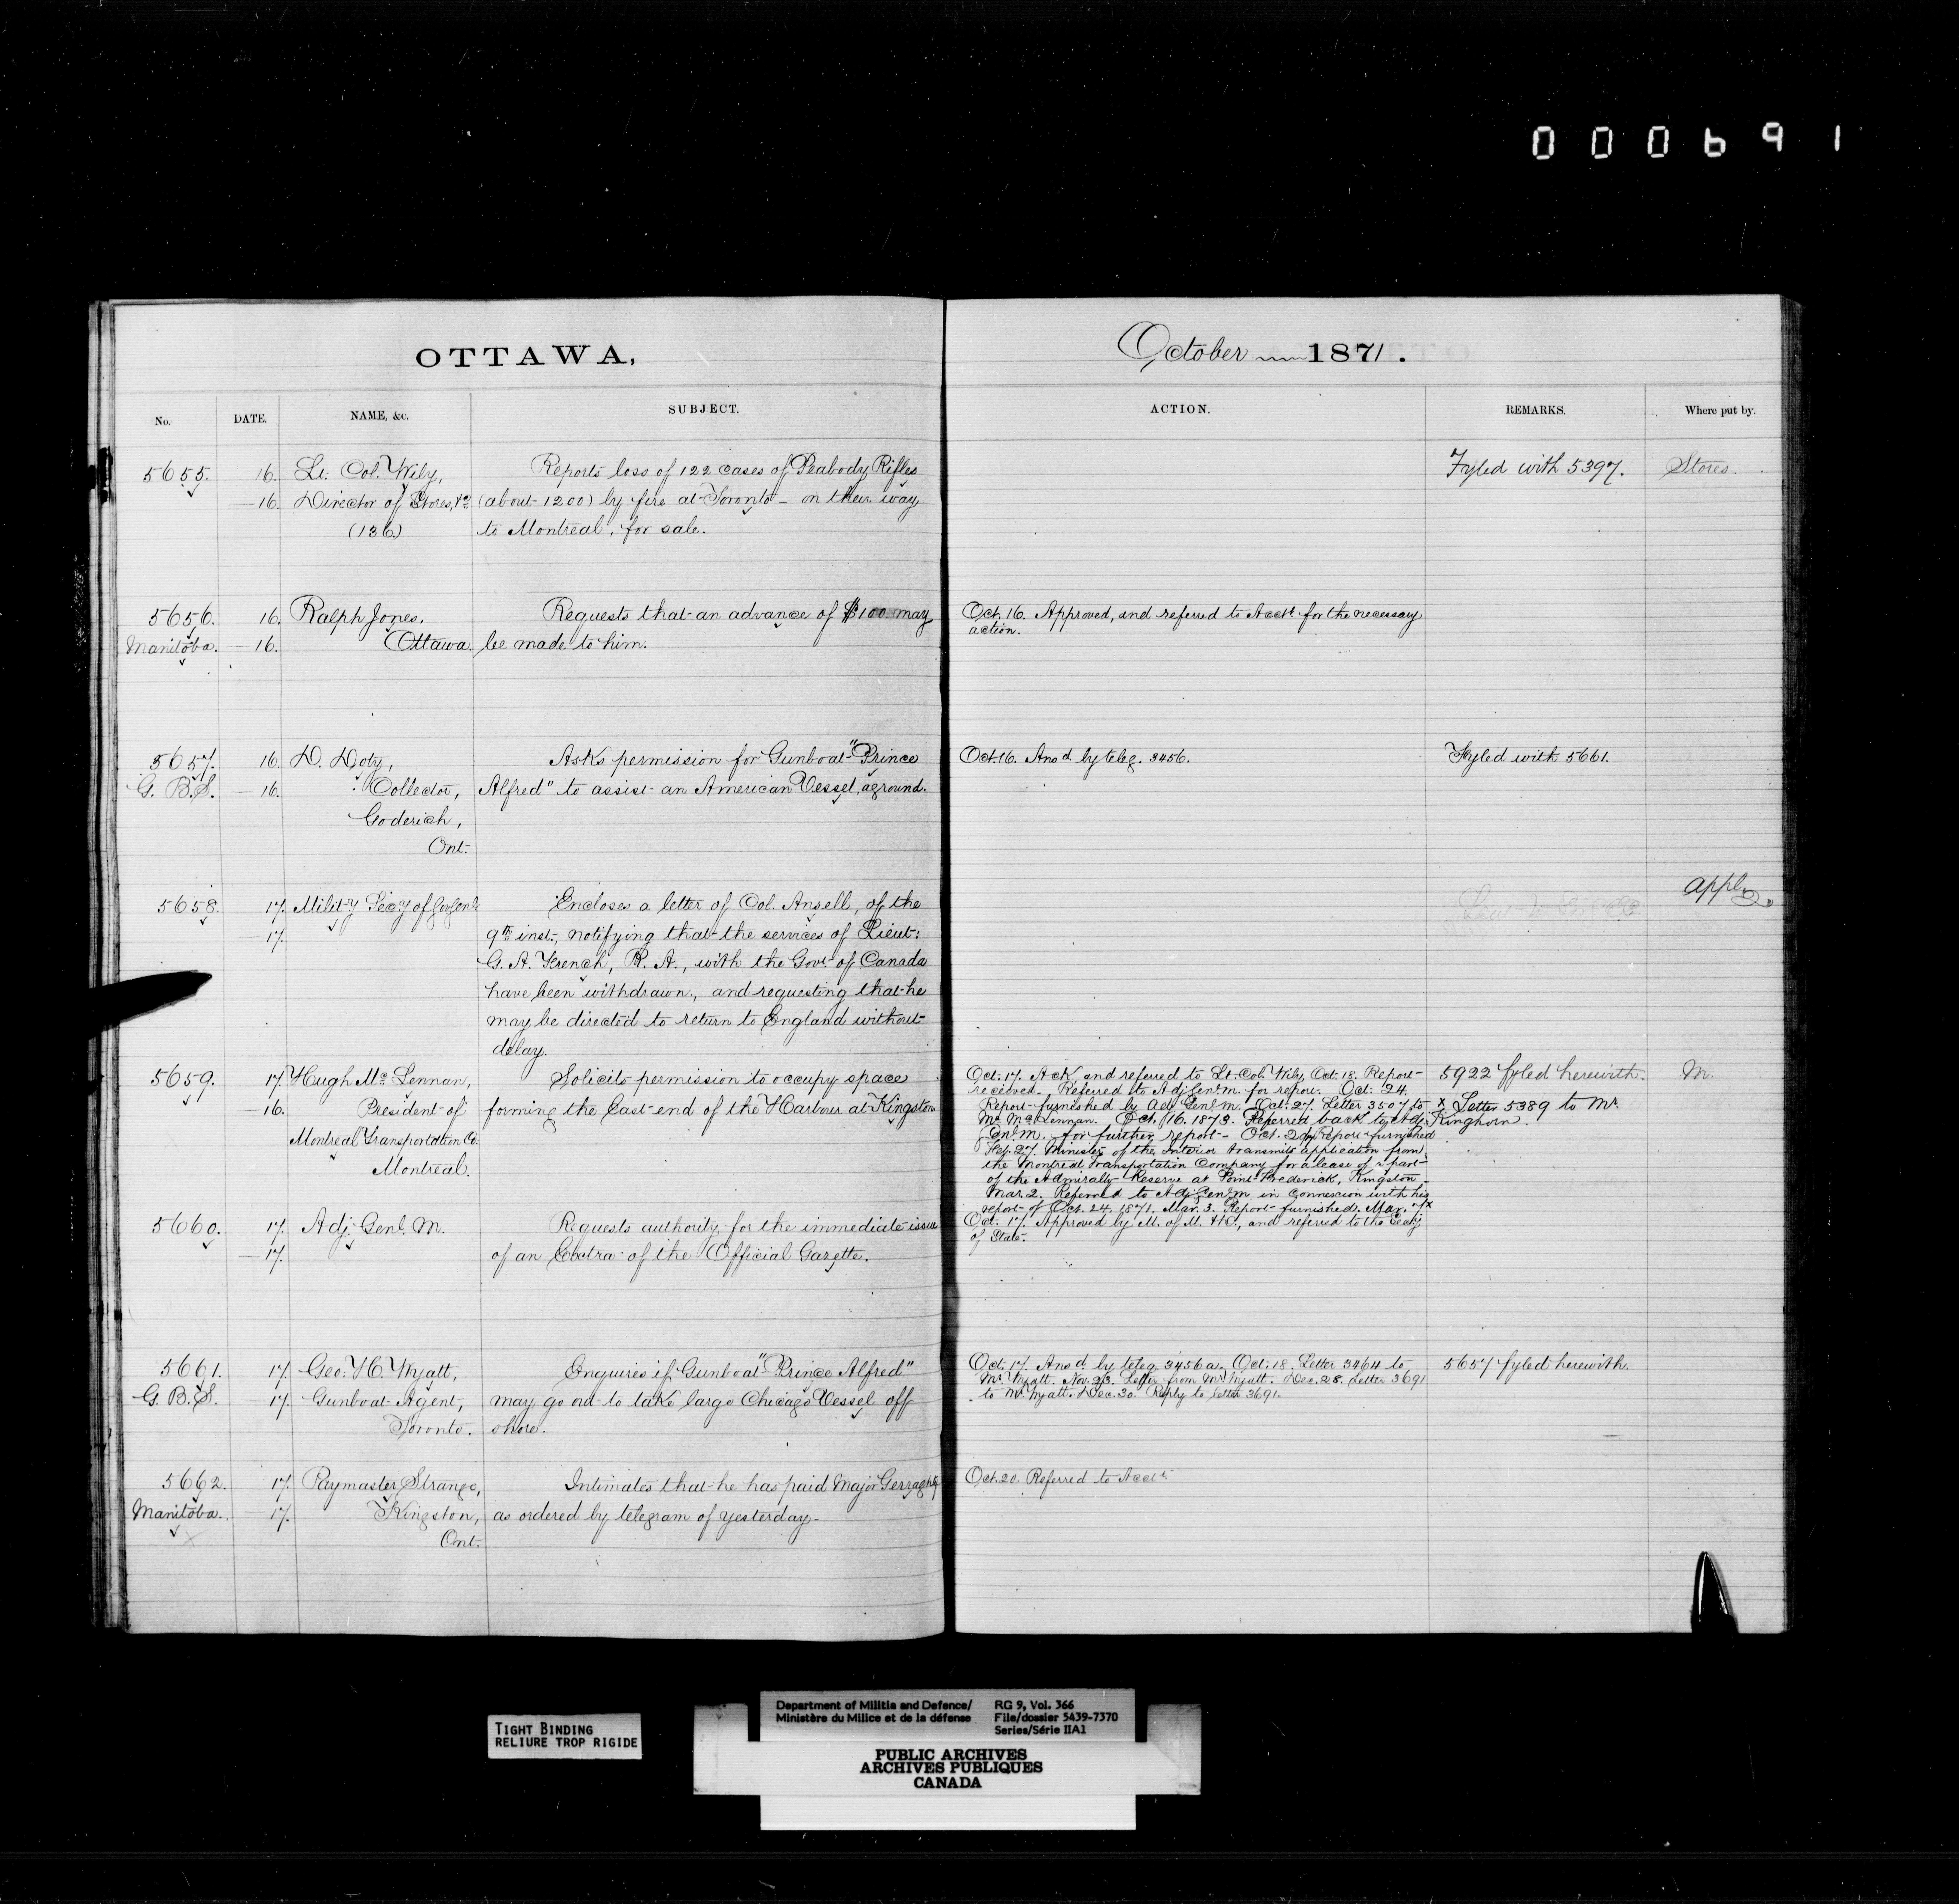 000691
OTTAWA,
October 1871.
No. DATE. NAME, &c. SUBJECT. ACTION. REMARKS. Where put by.
5655. 16. Lt. Col. Wily, Reports loss of 122 cases of Peabody Rifles Fyled with 5397. Stores.
16. Director of Stores, &c (about 1200) by fire at Toronto - on their way
(136) to Montreal, for sale.
5656. 16. Ralph Jones, Requests that an advance of $100 may Oct. 16. Approved, and referred to Acct. for the necessary
action.
Manitoba. 16. Ottawa. be made to him.
5657. 16. D. Doty, Asks permission for Gunboat "Prince Oct. 16. Ansd by teleg. 3456. Fyled with 5661.
G. B. S. 16. Collector, Alfred" to assist an American Vessel, aground.
Goderich,
Ont.
5658. 17. Milit-y Sec-y of Gov Genl Encloses a letter of Col. Ansell, of the Appln
17. 9th inst., notifying that the services of Lieut:
G. A. French, R. A., with the Govt. of Canada
have been withdrawn, and requesting that he
may be directed to return to England without
delay.
5659. 17. Hugh Mc Lennan, Solicits permission to occupy space
16. President of forming the East end of the Harbour at Kingston
Montreal Transportation Co.
Montreal.
Oct. 17. Ack. and referred to Lt. Col. Wily, Oct. 18. Report 5922 fyled herewith. M.
received. Referred to Adj. Genl. M. for report. Oct. 24.
Report furnished by Adj. Genl. M. Oct. 27. Letter 3507 to x Letter 5389 to Mr.
Mr. McLennan. Oct. 16. 1873. Referred back to Adj. Kinghorn.
Genl. M. for further report - Oct. Report furnished
Feb. 27. Minister of the Interior transmits application from
the Montreal Transportation Company for a lease of a part
of the Admiralty Reserve at Point Frederick, Kingston -
Mar. 2. Referred to Adj. Genl. M. in connexion with his
report of Oct. 24, 1871. Mar. 3. Report furnished. Mar. 7 x
5660. 17. Adj. Genl. M. Requests authority for the immediate issue Oct. 17. Approved by M. of M. &D., and referred to the Secy
of State.
17. of an Extra of the Official Gazette.
5661. 17. Geo. H. Wyatt, Enquires if Gunboat "Prince Alfred" Oct. 17. Ansd by teleg. 3456a. Oct. 18. Letter 3464 to 5657 fyled herewith.
Mr. Wyatt. Nov. 23. Letter from Mr. Wyatt. Dec. 28. Letter 3691
G. B. S. 17. Gunboat Agent, may go out to take large Chicago Vessel off to Mr. Wyatt. Dec. 30. Reply to letter 3691.
Toronto. shore.
5662. 17. Paymaster Strange, Intimates that he has paid Major Gerraghty Oct. 20. Referred to Acct.
Manitoba. 17. Kingston, as ordered by telegram of yesterday -
x Ont.
TIGHT BINDING
RELIURE TROP RIGIDE
Department of Militia and Defence/ RG 9, Vol. 366
Ministère du Milice et de la défense File/dossier 5439-7370
Series/Série IIA1
PUBLIC ARCHIVES
ARCHIVES PUBLIQUES
CANADA